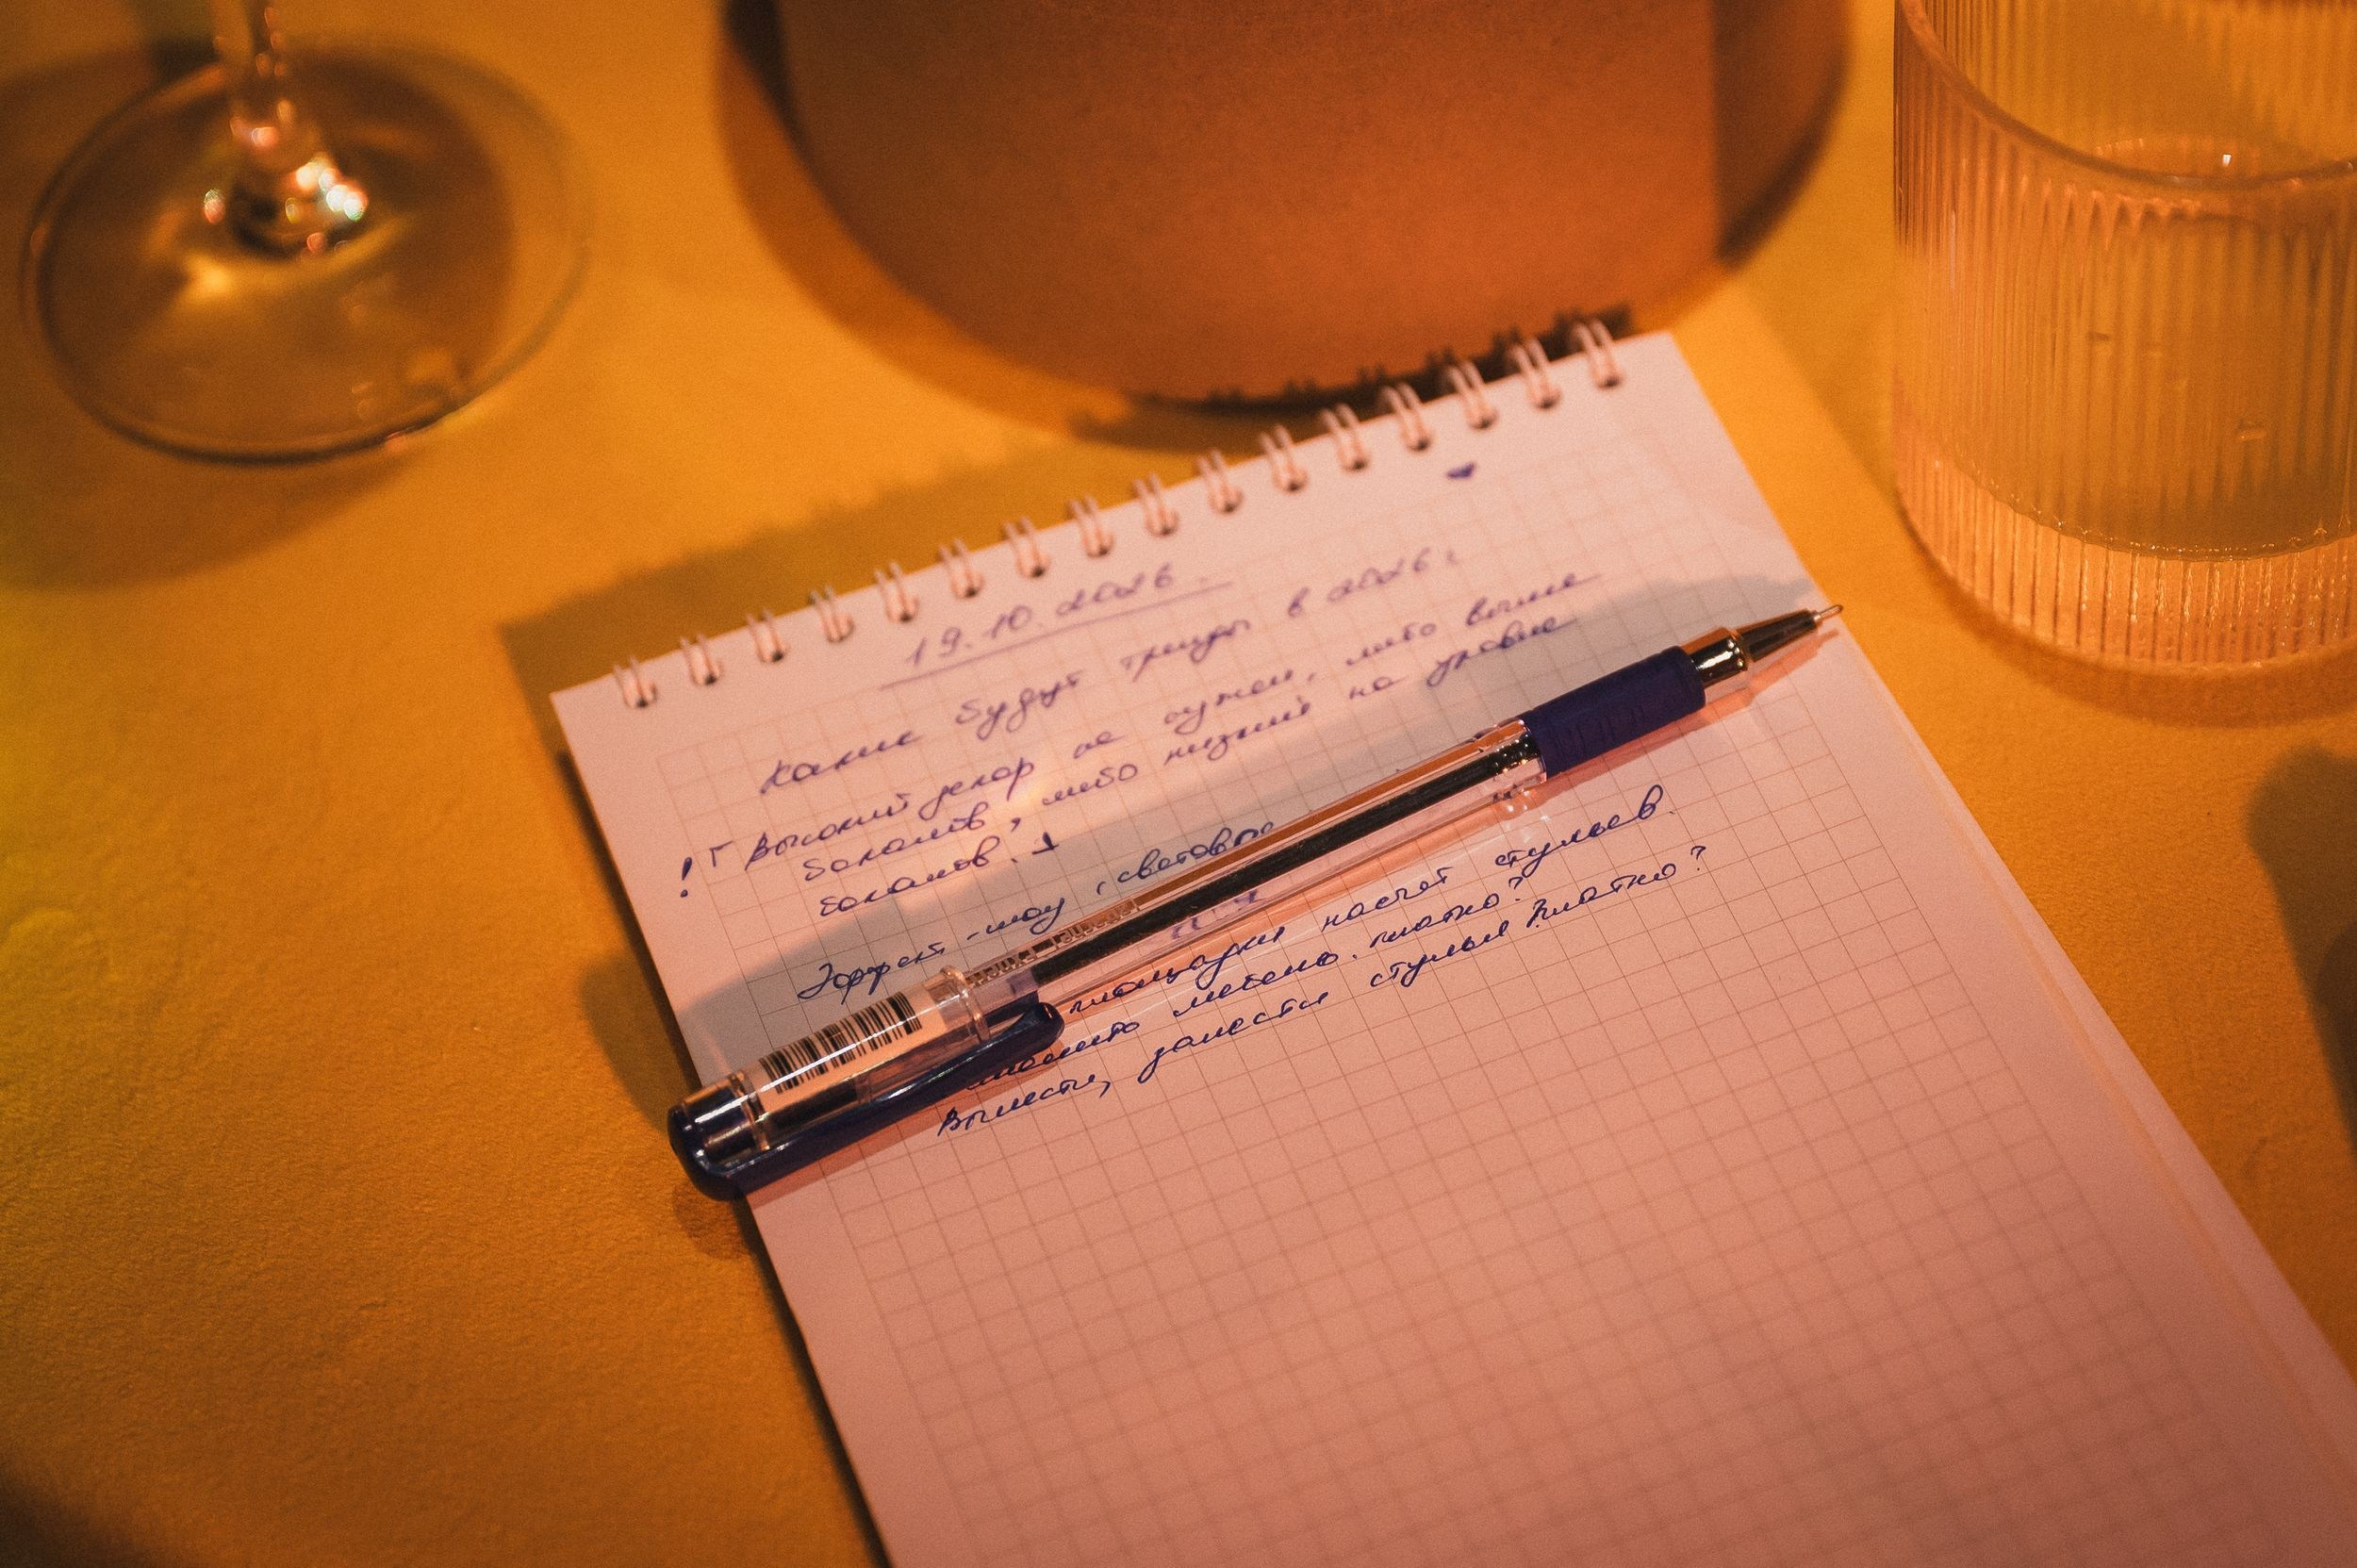 19.10.2026.
Какие будут тренды в 2026?
! Г Высокий декор не нужен, либо выше
бокалов, либо низкий на уровне
бокалов.
Эффект-шоу, световое
площадки насчёт стульев.
мебель. платно?
Вынести, занести стулья платно?